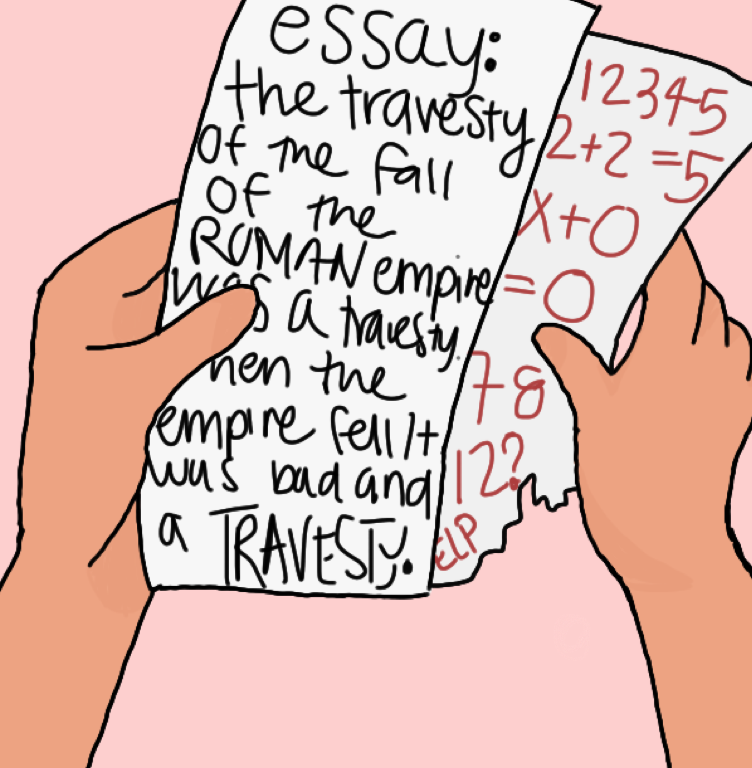 essay:
the travesty
of the fall
of the
ROMAN empire
was a travesty.
hen the
empire fell it
was bad and
a TRAVESTY.
12345
2+2=5
x+0
=0
78
12?
ELP